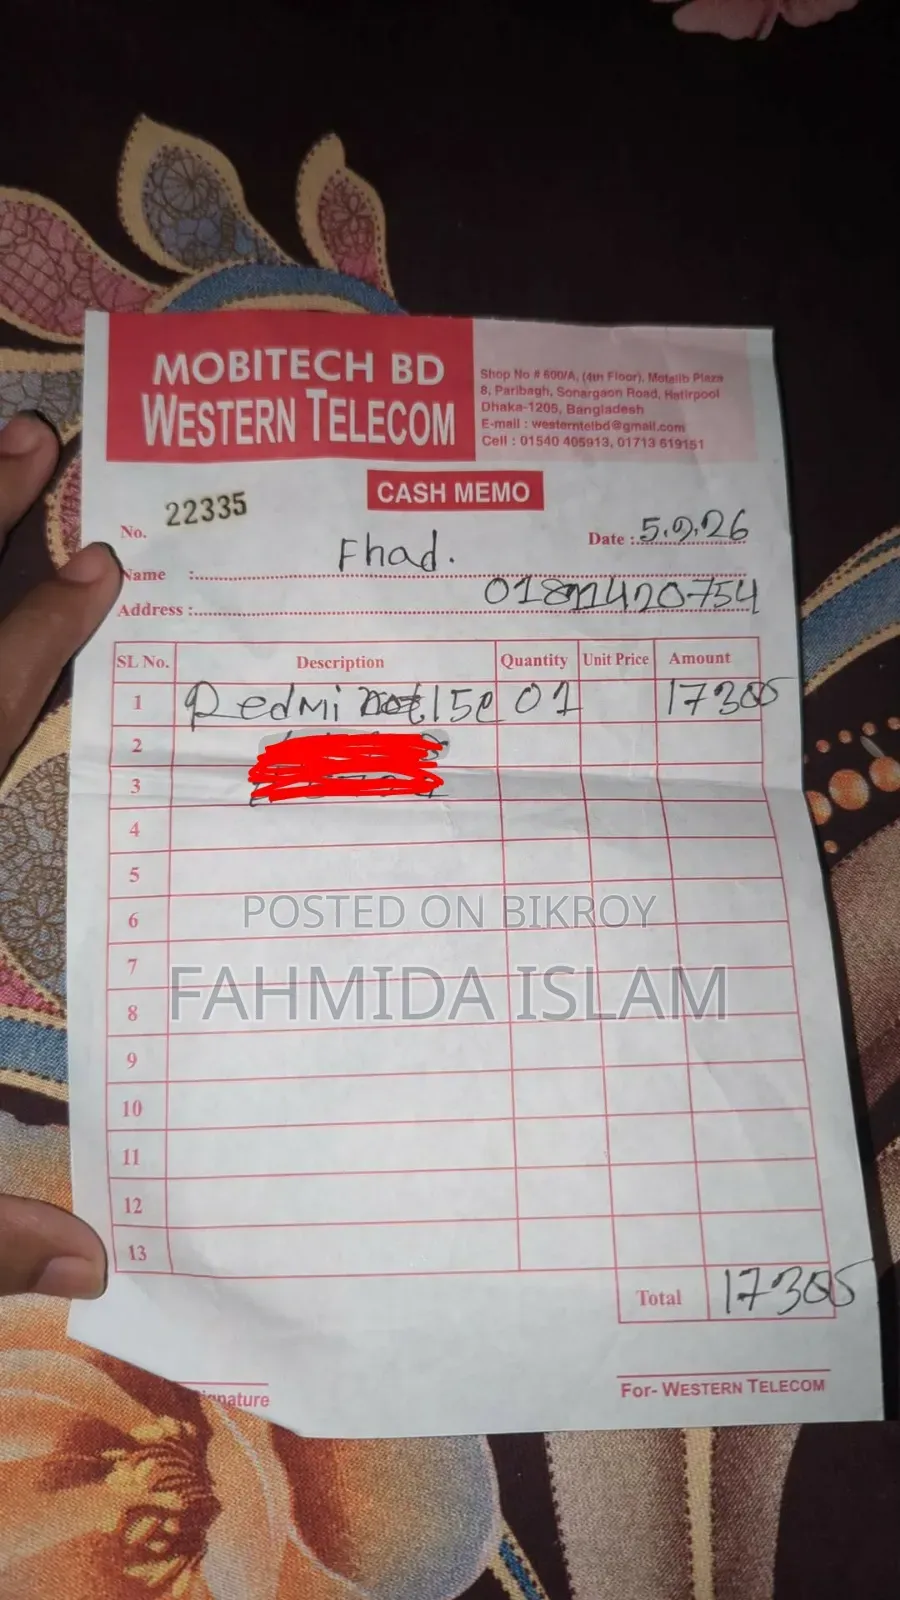 MOBITECH BD
WESTERN TELECOM
Shop No # 600/A, (4th Floor), Motalib Plaza
8, Paribagh, Sonargaon Road, Hatirpool
Dhaka-1205, Bangladesh
E-mail : westerntelbd@gmail.com
Cell : 01540 405913, 01713 619151
CASH MEMO
No. 22335
Date : 5.9.26
Name : Fhad.
Address :
SL No. Description Quantity Unit Price Amount
1 Redmi 15c 01 17305
2
3
4
5
6
POSTED ON BIKROY
7
FAHMIDA ISLAM
8
9
10
11
12
13
Total 17305
Signature
For- WESTERN TELECOM